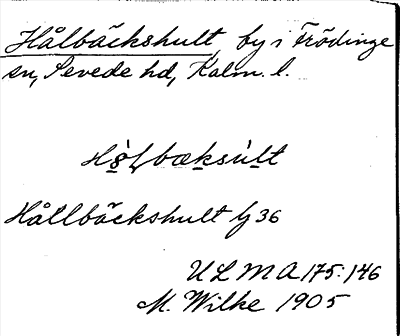 Hålbäckshult, by i Frödinge
sn, Sevede hd, Kalm. l.
Hållbäckshult 1/3 36
ULMA 175:146
M. Wilke 1905